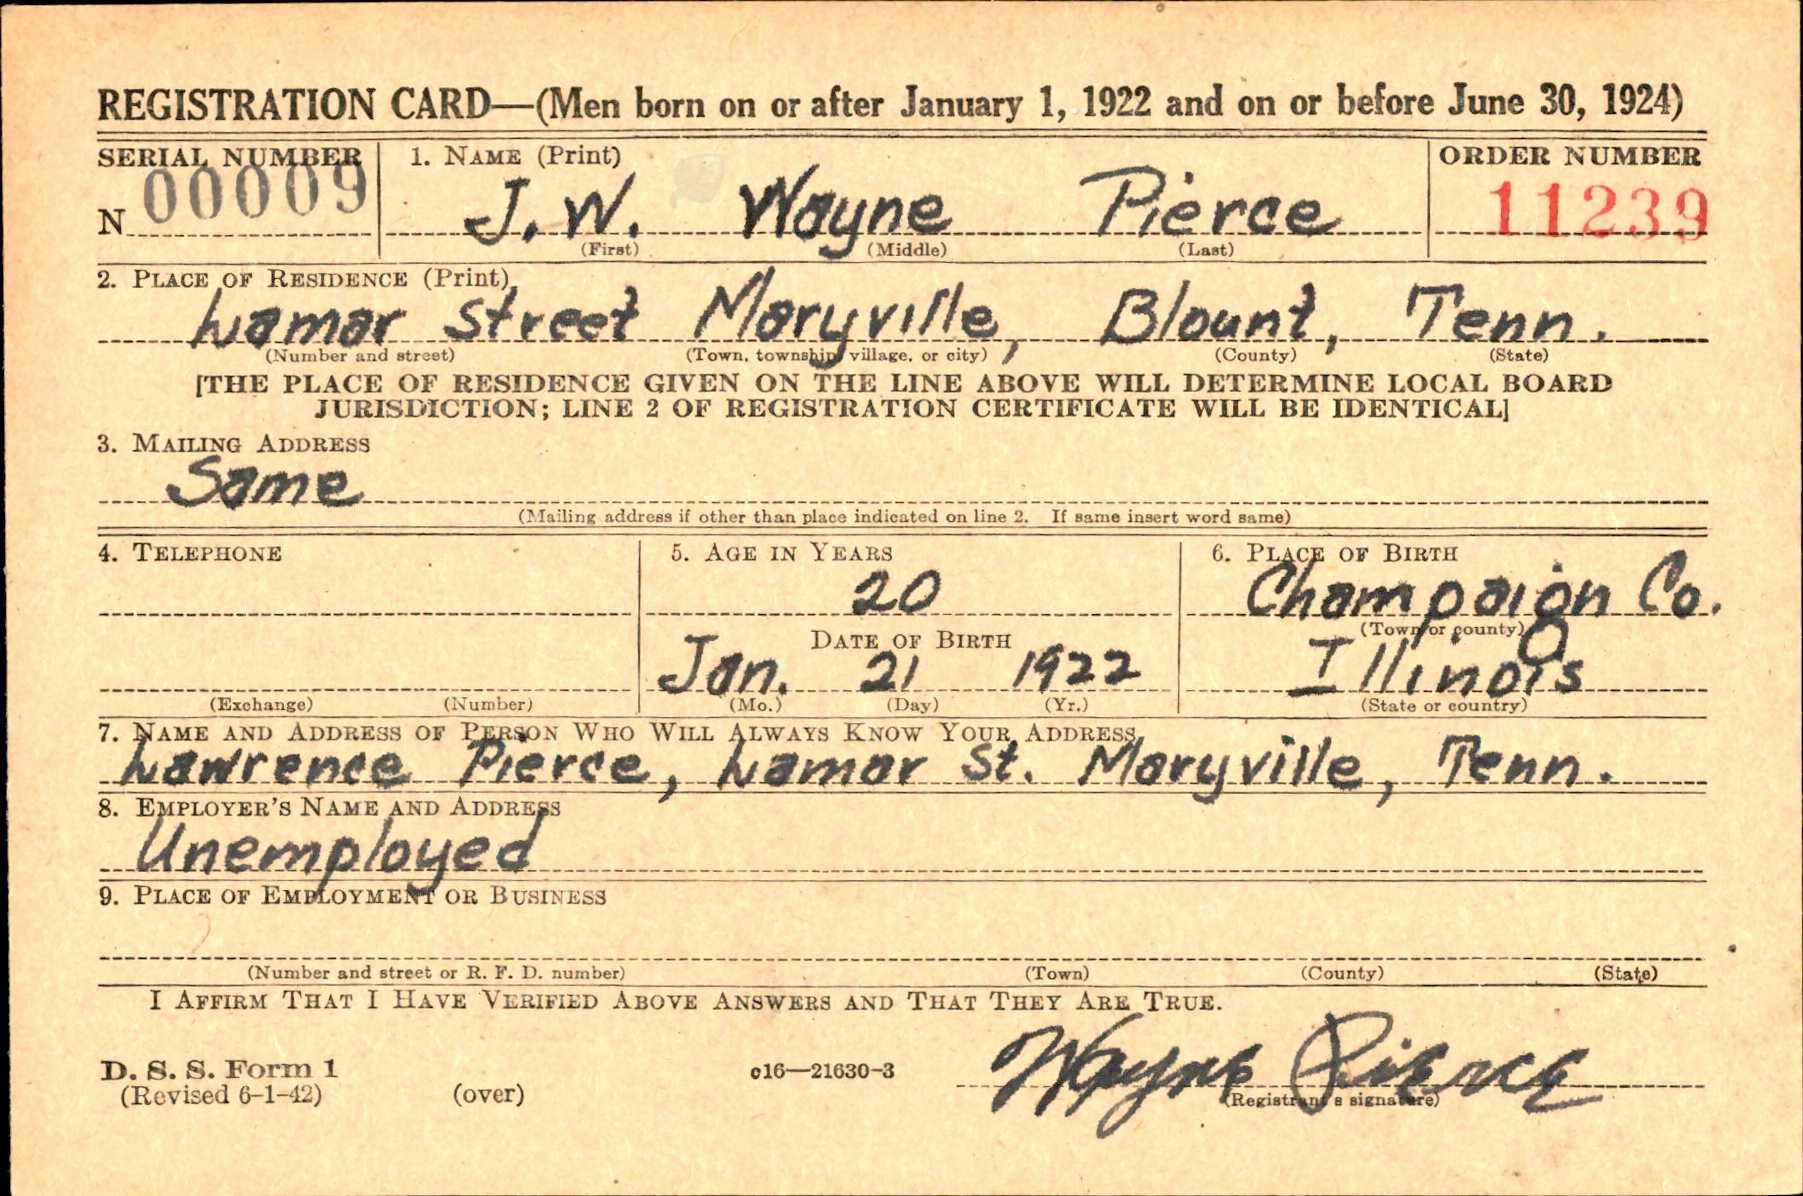 REGISTRATION CARD—(Men born on or after January 1, 1922 and on or before June 30, 1924)
SERIAL NUMBER 1. NAME (Print) ORDER NUMBER
N 00009 J. W. Wayne Pierce 11239
(First) (Middle) (Last)
2. PLACE OF RESIDENCE (Print)
Lamar Street Maryville, Blount, Tenn.
(Number and street) (Town, township, village, or city) (County) (State)
[THE PLACE OF RESIDENCE GIVEN ON THE LINE ABOVE WILL DETERMINE LOCAL BOARD
JURISDICTION; LINE 2 OF REGISTRATION CERTIFICATE WILL BE IDENTICAL]
3. MAILING ADDRESS
Same
(Mailing address if other than place indicated on line 2. If same insert word same)
4. TELEPHONE 5. AGE IN YEARS 6. PLACE OF BIRTH
20 Champaign Co.
DATE OF BIRTH (Town or county)
Jan. 21 1922 Illinois
(Exchange) (Number) (Mo.) (Day) (Yr.) (State or country)
7. NAME AND ADDRESS OF PERSON WHO WILL ALWAYS KNOW YOUR ADDRESS
Lawrence Pierce, Lamar St. Maryville, Tenn.
8. EMPLOYER'S NAME AND ADDRESS
Unemployed
9. PLACE OF EMPLOYMENT OR BUSINESS
(Number and street or R. F. D. number) (Town) (County) (State)
I AFFIRM THAT I HAVE VERIFIED ABOVE ANSWERS AND THAT THEY ARE TRUE.
D. S. S. Form 1 c16—21630-3 Wayne Pierce
(Revised 6-1-42) (over) (Registrant's signature)